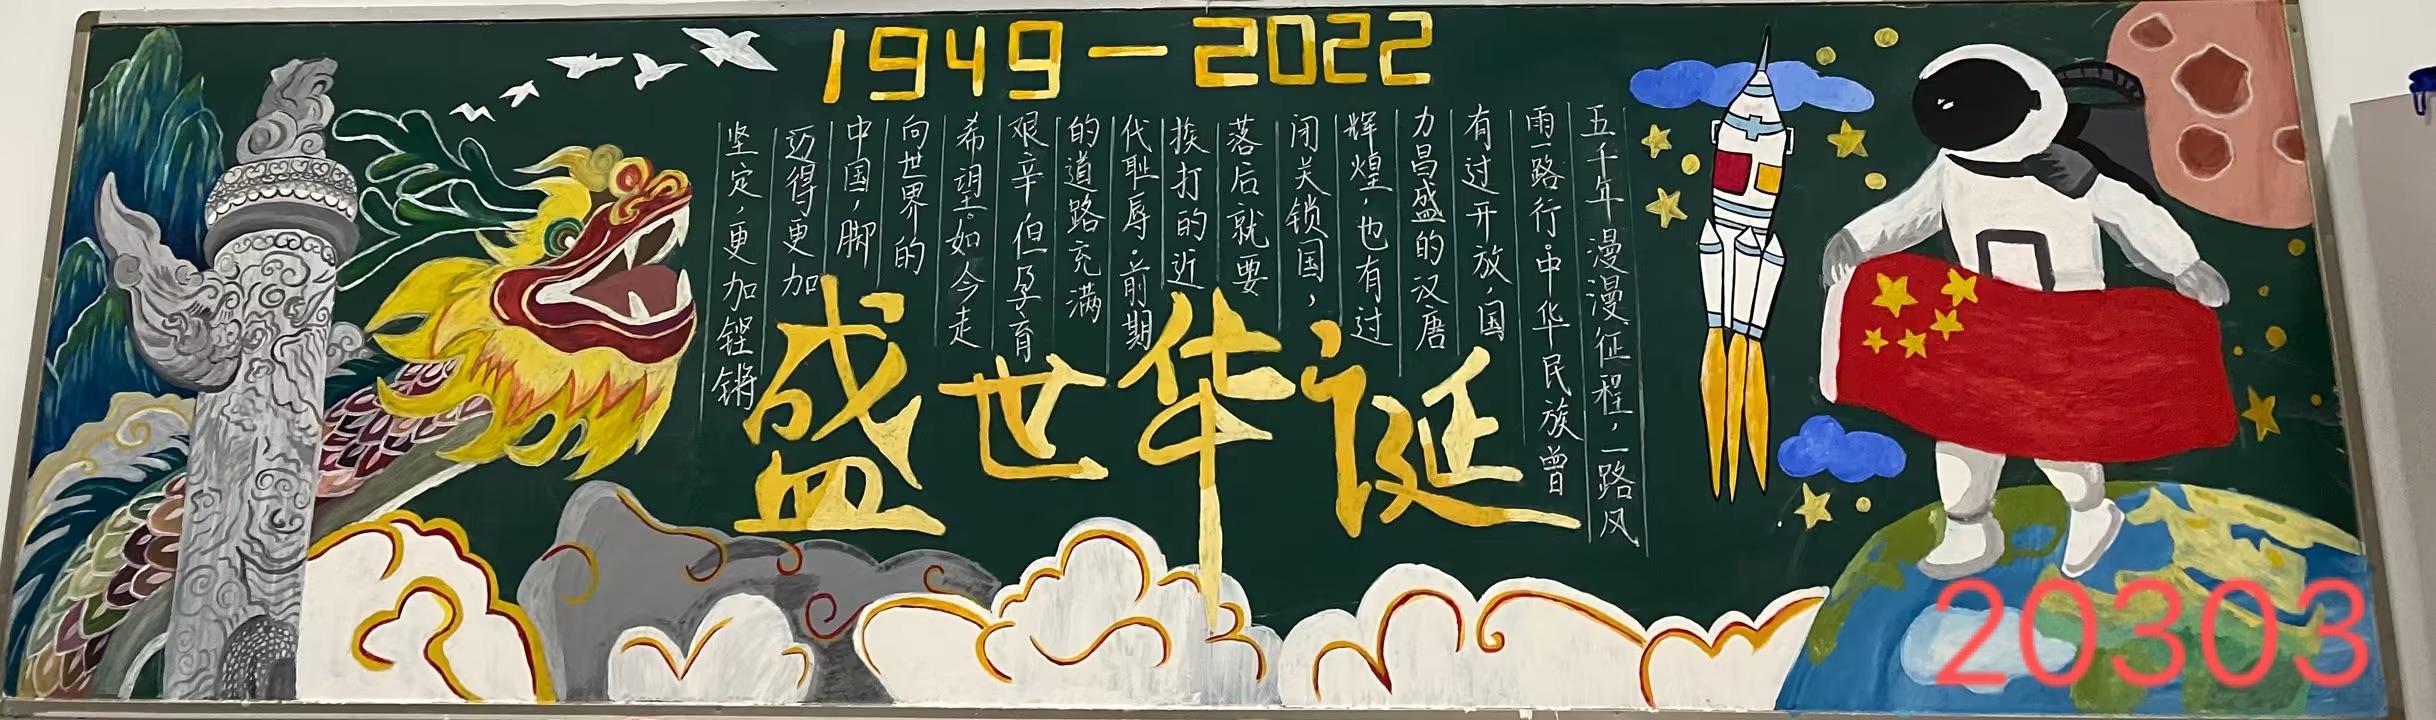 1949—2022
五千年漫漫征程，一路风
雨一路行。中华民族曾
有过开放，国
力昌盛的汉唐
辉煌，也有过
闭关锁国，
落后就要
挨打的近
代耻辱。前期
的道路充满
艰辛但孕育
希望。如今走
向世界的
中国，脚
迈得更加
坚定，更加铿锵
盛世华诞
20303